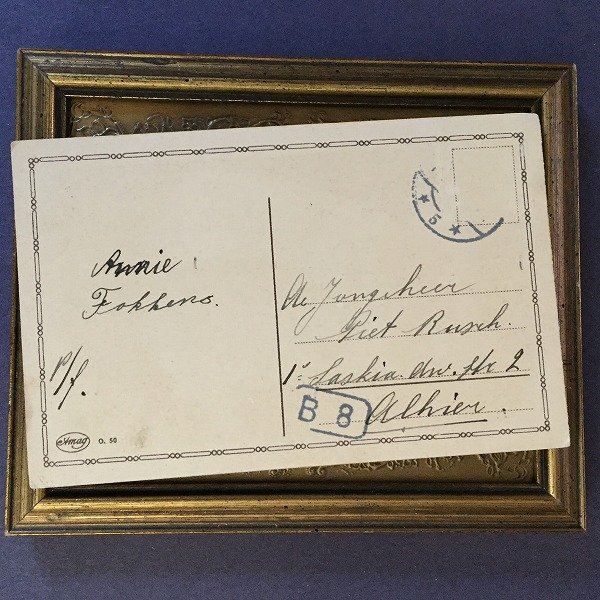 Annie
Fokkens.
p/f.
Amag
O. 50
★ 5 ★
de Jongeheer
Piet Rusch.
1e Saskia dw. str 2
B 8
Alhier.